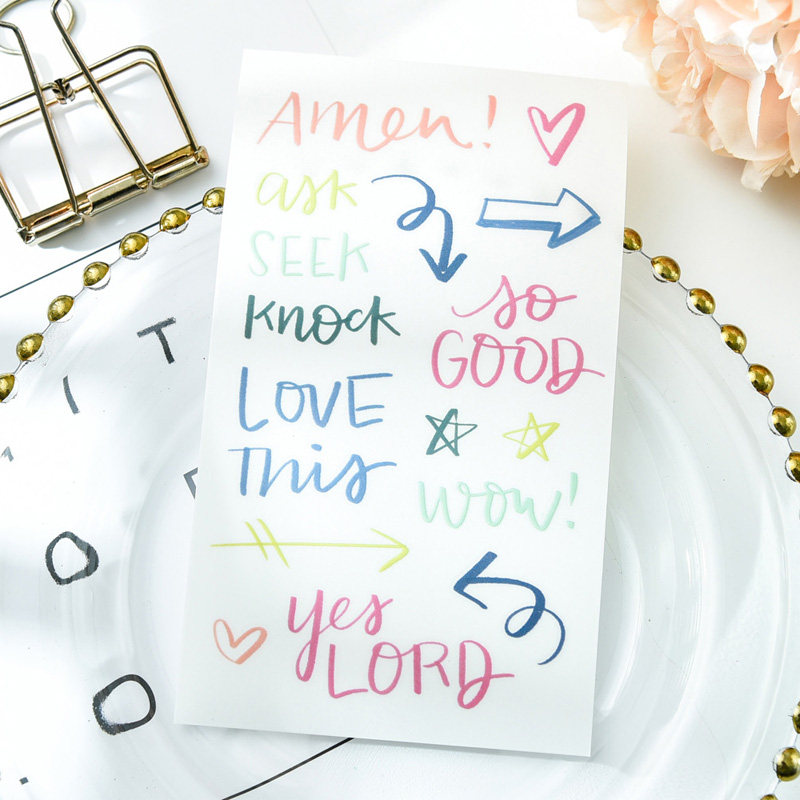 Amen!
ask
SEEK
knock
so
GOOD
LOVE
This
wow!
yes
LORD